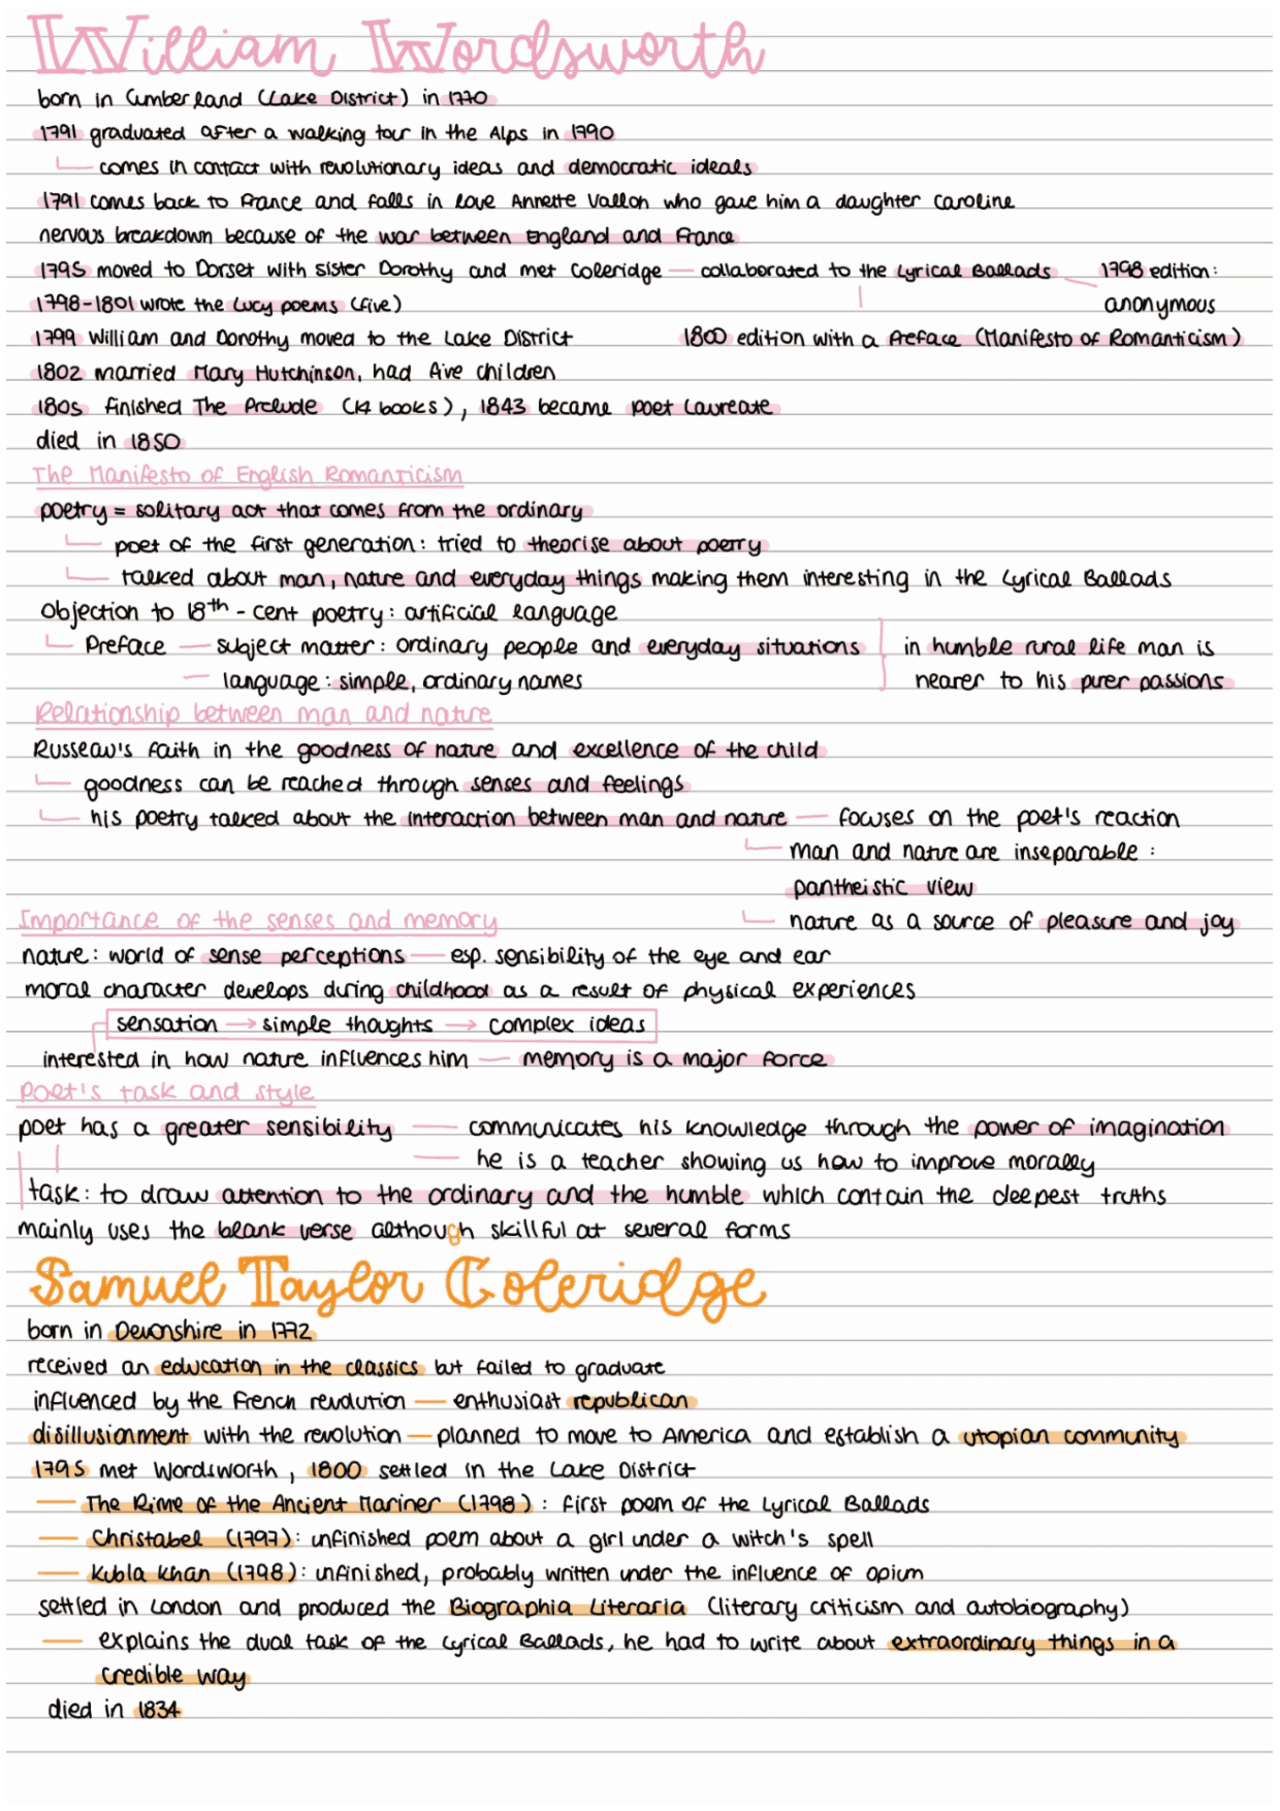 William Wordsworth
born in Cumberland (Lake District) in 1770
1791 graduated after a walking tour in the Alps in 1790
comes in contact with revolutionary ideas and democratic ideals
1791 comes back to France and falls in love Annette Vallon who gave him a daughter Caroline
nervous breakdown because of the war between England and France
1795 moved to Dorset with sister Dorothy and met Coleridge — collaborated to the Lyrical Ballads — 1798 edition:
1798-1801 wrote the Lucy poems (five) anonymous
1799 William and Dorothy moved to the Lake District 1800 edition with a Preface (Manifesto of Romanticism)
1802 married Mary Hutchinson, had five children
1805 finished The Prelude (14 books), 1843 became poet Laureate
died in 1850
The Manifesto of English Romanticism
poetry = solitary act that comes from the ordinary
poet of the first generation: tried to theorise about poetry
talked about man, nature and everyday things making them interesting in the Lyrical Ballads
objection to 18th-cent poetry: artificial language
Preface — subject matter: ordinary people and everyday situations } in humble rural life man is
— language: simple, ordinary names nearer to his purer passions
Relationship between man and nature
Russeau's faith in the goodness of nature and excellence of the child
goodness can be reached through senses and feelings
his poetry talked about the interaction between man and nature — focuses on the poet's reaction
man and nature are inseparable:
pantheistic view
Importance of the senses and memory nature as a source of pleasure and joy
nature: world of sense perceptions — esp. sensibility of the eye and ear
moral character develops during childhood as a result of physical experiences
sensation → simple thoughts → complex ideas
interested in how nature influences him — memory is a major force
Poet's task and style
poet has a greater sensibility — communicates his knowledge through the power of imagination
— he is a teacher showing us how to improve morally
task: to draw attention to the ordinary and the humble which contain the deepest truths
mainly uses the blank verse although skillful at several forms
Samuel Taylor Coleridge
born in Devonshire in 1772
received an education in the classics but failed to graduate
influenced by the French revolution — enthusiast republican
disillusionment with the revolution — planned to move to America and establish a utopian community
1795 met Wordsworth, 1800 settled in the Lake District
— The Rime of the Ancient Mariner (1798): first poem of the Lyrical Ballads
— Christabel (1797): unfinished poem about a girl under a witch's spell
— Kubla Khan (1798): unfinished, probably written under the influence of opium
settled in London and produced the Biographia Literaria (literary criticism and autobiography)
— explains the dual task of the Lyrical Ballads, he had to write about extraordinary things in a
credible way
died in 1834